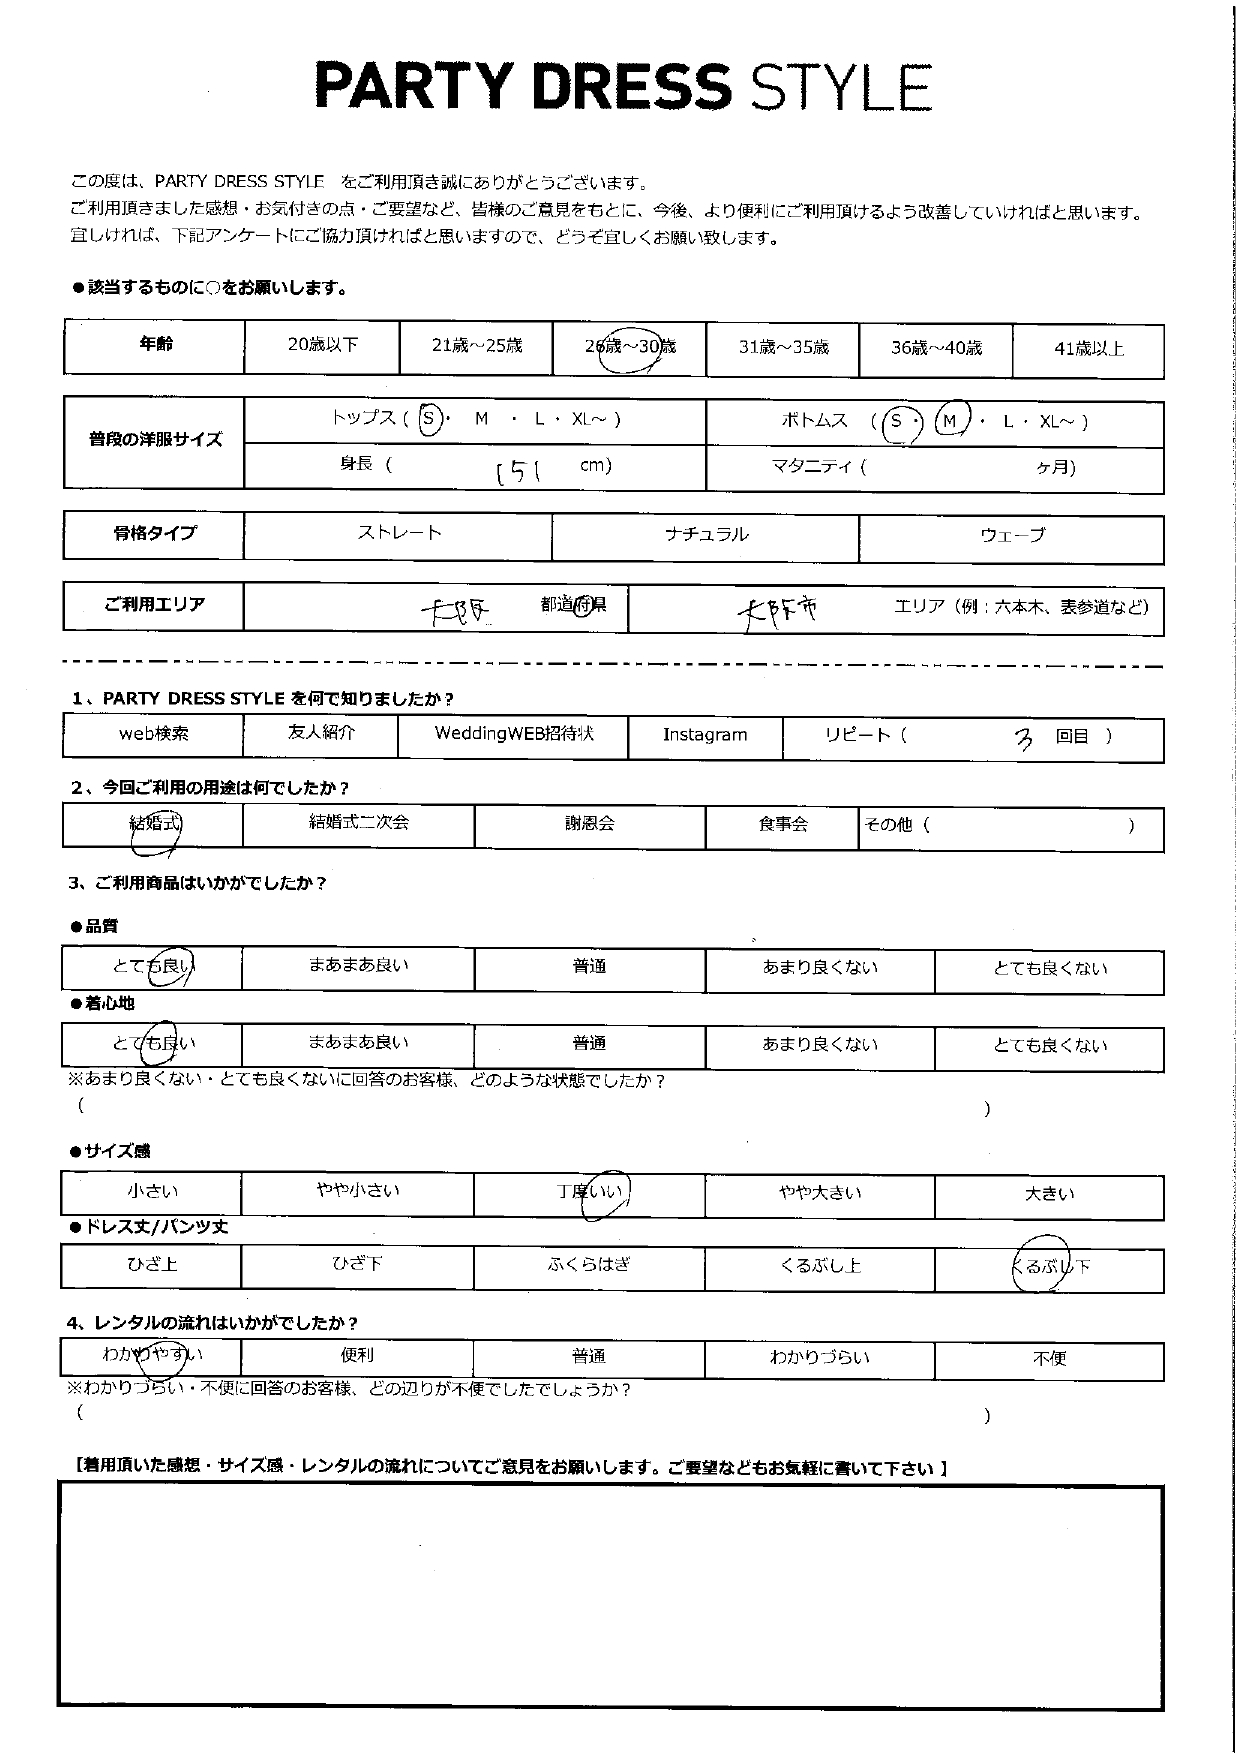 PARTY DRESS STYLE
この度は、PARTY DRESS STYLE をご利用頂き誠にありがとうございます。
ご利用頂きました感想・お気付きの点・ご要望など、皆様のご意見をもとに、今後、より便利にご利用頂けるよう改善していければと思います。
宜しければ、下記アンケートにご協力頂ければと思いますので、どうぞ宜しくお願い致します。
●該当するものに○をお願いします。
年齢 20歳以下 21歳～25歳 26歳～30歳 31歳～35歳 36歳～40歳 41歳以上
普段の洋服サイズ トップス ( S ・ M ・ L ・ XL～ ) ボトムス ( S ・ M ・ L ・ XL～ )
身長 ( 151 cm) マタニティ ( ヶ月)
骨格タイプ ストレート ナチュラル ウェーブ
ご利用エリア 大阪 都道府県 大阪市 エリア（例：六本木、表参道など）
1、PARTY DRESS STYLE を何で知りましたか？
web検索 友人紹介 WeddingWEB招待状 Instagram リピート ( 3 回目 )
2、今回ご利用の用途は何でしたか？
結婚式 結婚式二次会 謝恩会 食事会 その他 ( )
3、ご利用商品はいかがでしたか？
●品質
とても良い まあまあ良い 普通 あまり良くない とても良くない
●着心地
とても良い まあまあ良い 普通 あまり良くない とても良くない
※あまり良くない・とても良くないに回答のお客様、どのような状態でしたか？
( )
●サイズ感
小さい やや小さい 丁度いい やや大きい 大きい
●ドレス丈/パンツ丈
ひざ上 ひざ下 ふくらはぎ くるぶし上 くるぶし下
4、レンタルの流れはいかがでしたか？
わかりやすい 便利 普通 わかりづらい 不便
※わかりづらい・不便に回答のお客様、どの辺りが不便でしたでしょうか？
( )
【着用頂いた感想・サイズ感・レンタルの流れについてご意見をお願いします。ご要望などもお気軽に書いて下さい 】